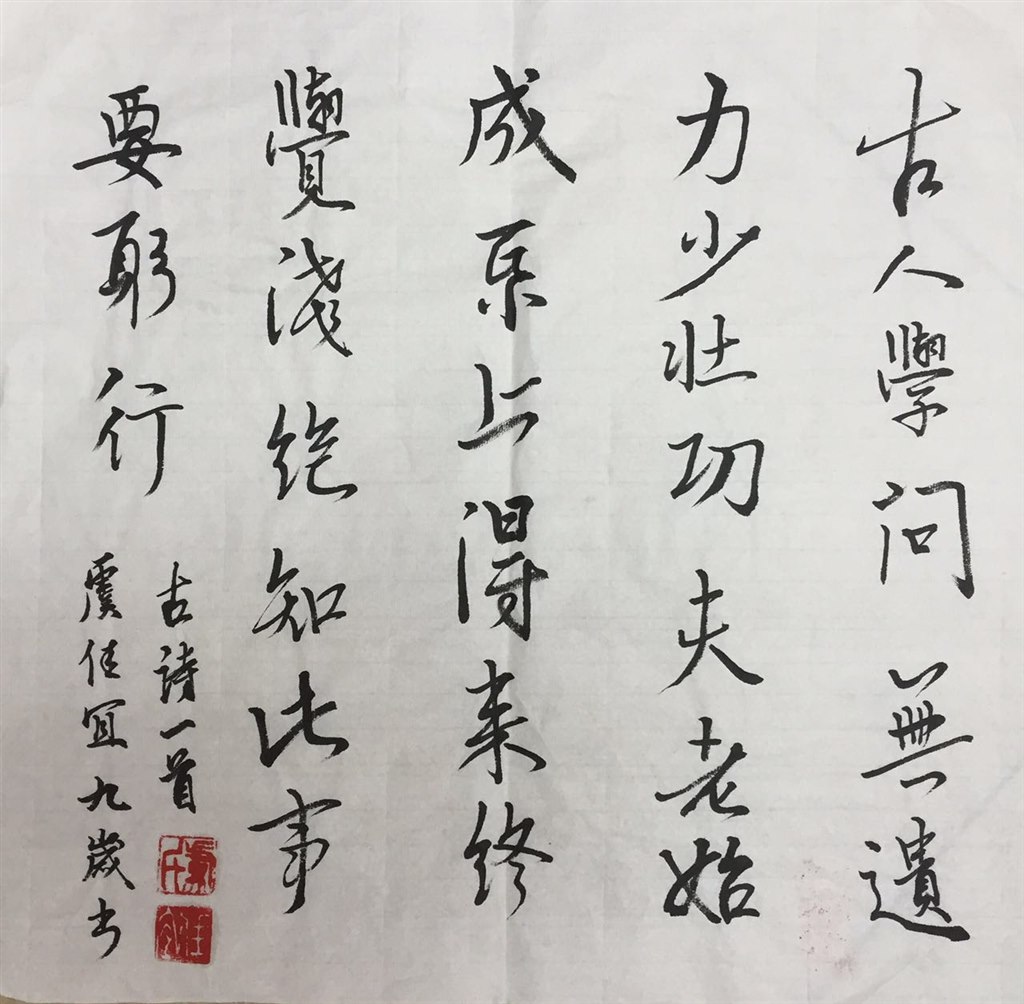 古人學問無遺
力少壮功夫老始
成帋上得来終
覺淺絕知此事
要躬行
古詩一首
虞佳冝九歲书